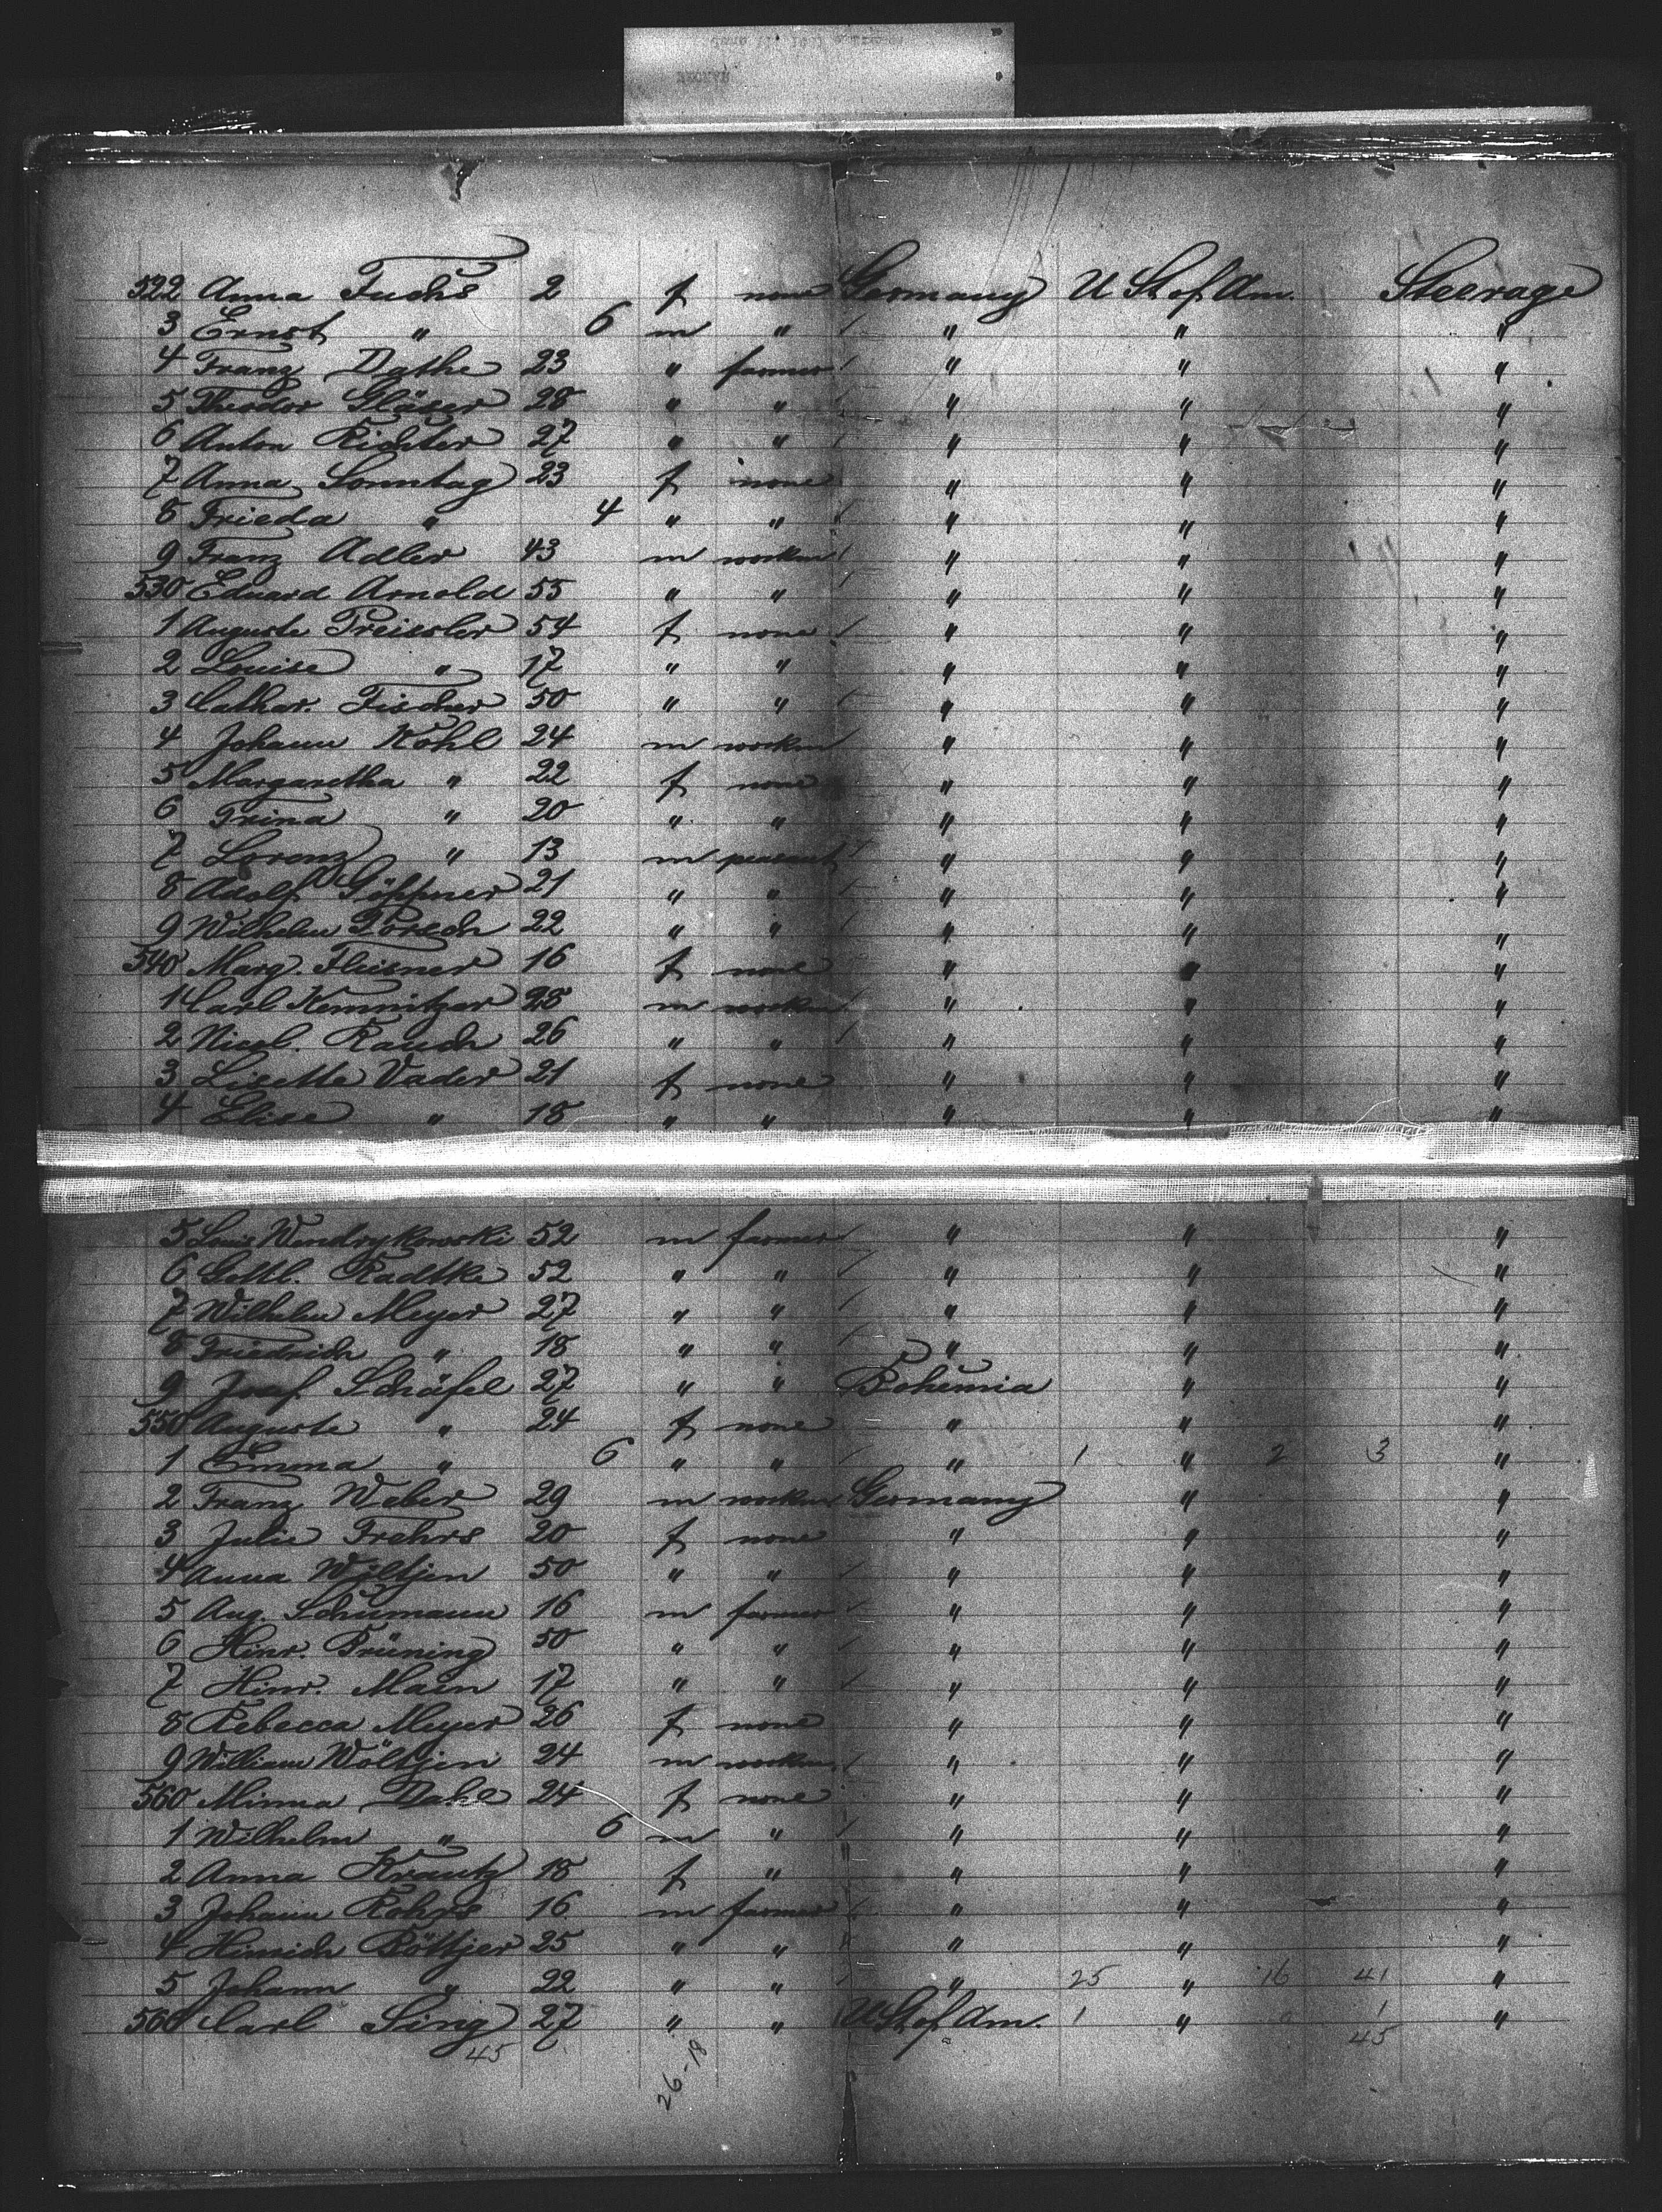 522 Anna Fuchs 2 f none Germany U St of Am. Steerage
3 Ernst " 6 m " " " "
4 Franz Dathe 23 " farmer " " "
5 Theodor Gläser 28 " " " " "
6 Anton Richter 27 " " " " "
7 Anna Sonntag 23 f none " " "
8 Frieda " 4 " " " " "
9 Franz Adler 43 m workm " " "
530 Eduard Arnold 55 " " " " "
1 Auguste Preissler 54 f none " " "
2 Louise " 17 " " " " "
3 Cathar. Fischer 50 " " " " "
4 Johann Köhl 24 m workm " " "
5 Margaretha " 22 f none " " "
6 Trina " 20 " " " " "
7 Lorenz " 13 m peasant " " "
8 Adolf 21 " " " " "
9 Wilhelm Porsch 22 " " " " "
540 Marg. Fleisner 16 f none " " "
1 Carl Kemnitzer 28 m workm " " "
2 Nicol. Rauch 26 " " " " "
3 Lisette Vader 21 f none " " "
4 Elise " 18 " " " " "
5 Louis 52 m farmer " " "
6 Gottl. Radtke 52 " " " " "
7 Wilhelm Meyer 27 " " " " "
8 Friedrich " 18 " " " " "
9 Josef Schäfel 27 " " Bohemia " "
550 Auguste " 24 f none " " "
1 Emma " 6 " " " 1 " 2 3 "
2 Franz Weber 29 m workm Germany " "
3 Julie Frehrs 20 f none " " "
4 Anna Wöltjen 50 " " " " "
5 Aug. Schumann 16 m farmer " " "
6 Hinr. Brüning 50 " " " " "
7 Hinr. Maen 17 " " " " "
8 Rebecca Meyer 26 f none " " "
9 William Wöltjen 24 m workm. " " "
560 Minna Dahl 24 f none " " "
1 Wilhelm " 6 m " " " "
2 Anna Krautz 18 f " " " "
3 Johann Rohrs 16 m farmer " " "
4 Hinrich Böttjer 25 " " " " "
5 Johann " 22 " " " 25 " 16 41 "
566 Carl Sing 27 " " U St of Am. 1 " 0 1 "
45 26-18 45